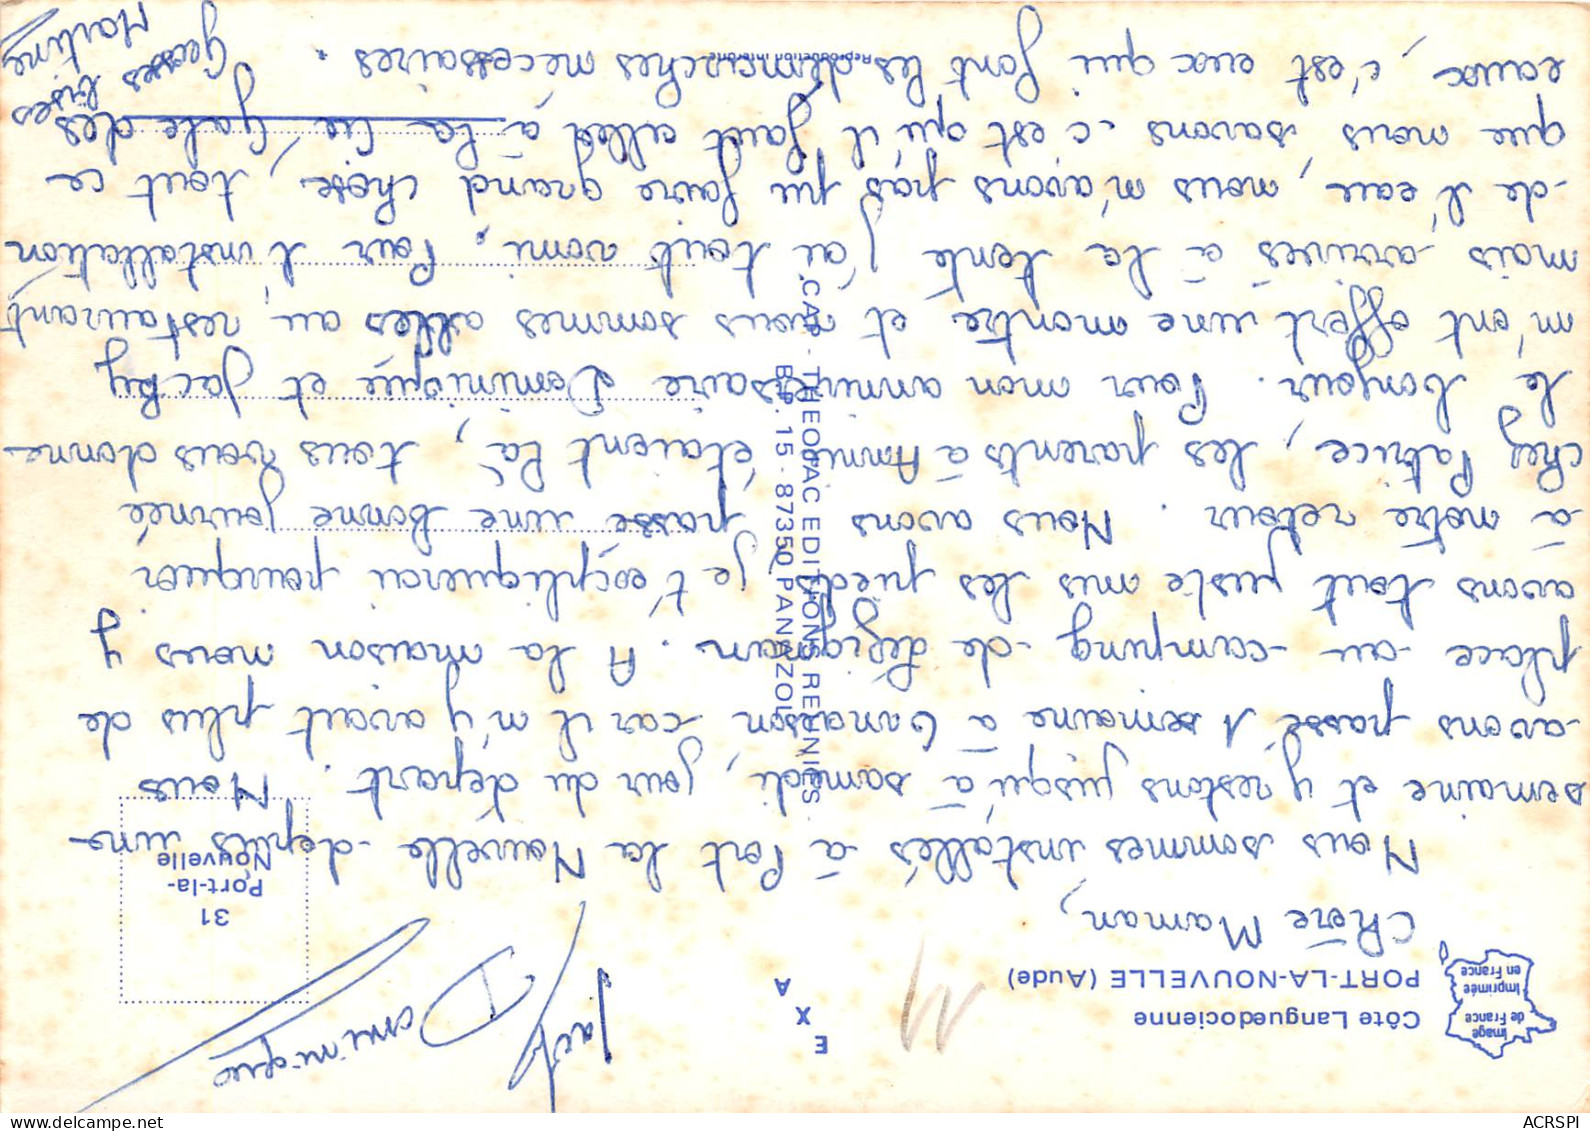 Image
de France
Imprimée
en France
Côte Languedocienne
PORT-LA-NOUVELLE (Aude)
E
X
A
Jacky
Dominique
31
Port-la-
Nouvelle
Chère Maman,
Nous sommes installés à Port la Nouvelle depuis une
semaine et y restons jusqu'à samedi, jour du départ. Nous
avons passé 1 semaine à car il n'y avait plus de
place au camping de . A la maison nous y
avons tout juste mis les pieds je t'expliquerai pourquoi
à notre retour. Nous avons passé une bonne journée
chez Patrice, les parents à Annie étaient là, tous vous donne
le bonjour. Pour mon anniversaire Dominique et Jacky
m'ont offert une montre et nous sommes allés au restaurant
mais arrivés à la tente j'ai tout vomi. Pour l'installation
de l'eau, nous n'avons pas pu faire grand chose, tout ce
que nous savons c'est qu'il faut aller à la Cie Gale des
eaux, c'est eux qui font les démarches nécessaires.
Grosses bises
Martine
CAP - THEOJAC EDITIONS REUNIES
B.P. 15 - 87350 PANAZOL
Reproduction interdite
ACRSPI